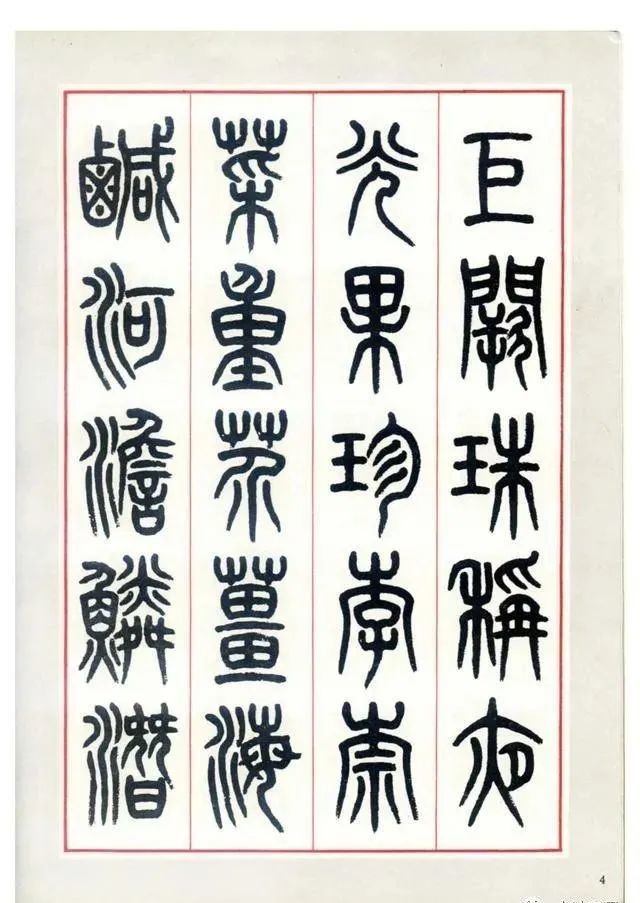 巨闕珠稱夜
光果珍李柰
菜重芥薑海
鹹河澹鱗潛
4